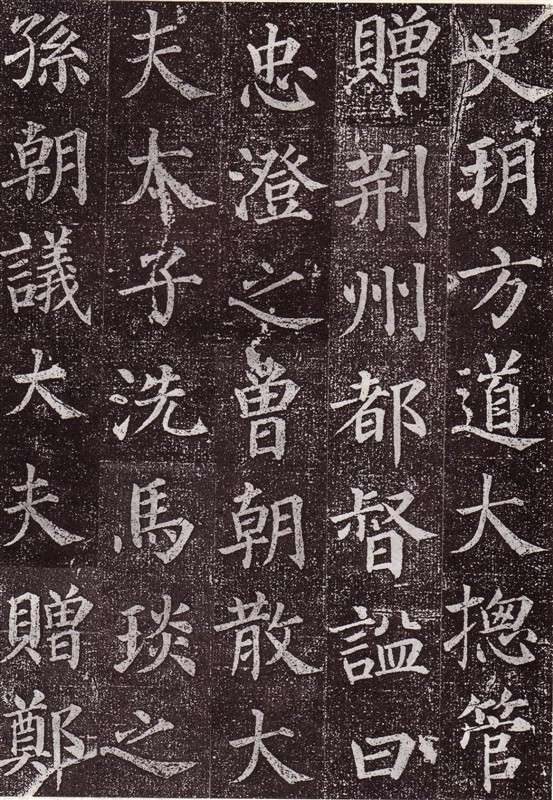 史玥方道大揔管
贈荆州都督謚曰
忠澄之曾朝散大
夫太子洗馬琰之
孫朝議大夫贈鄭